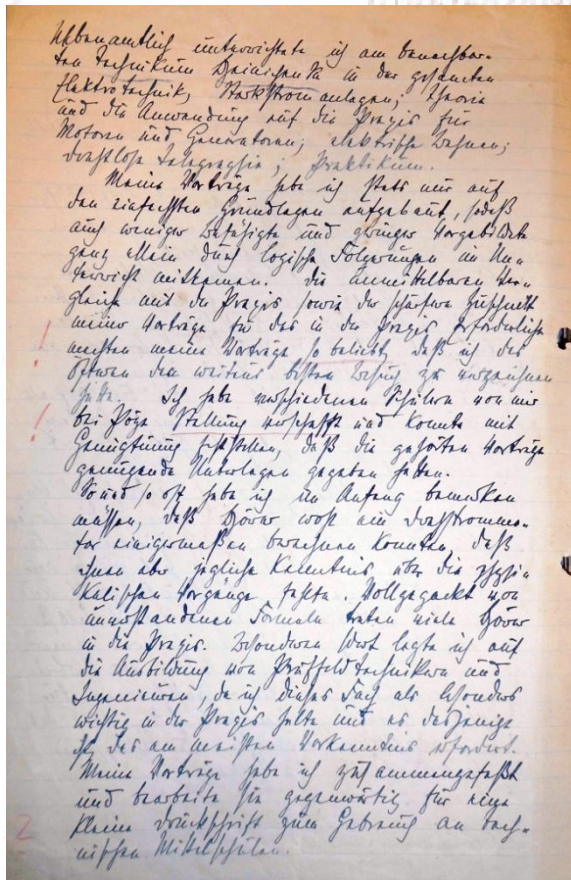 Nebenamtlich unterrichtete ich am benachbar-
ten Technikum Hainichen Sa in der gesamten
Elektrotechnik, Starkstromanlagen; Theorie
und die Anwendung auf die Praxis für
Motoren und Generatoren; elektrische Bahnen;
drahtlose Telegraphie; Praktikum.
Meine Vorträge habe ich stets nur auf
den einfachsten Grundlagen aufgebaut, sodaß
auch weniger befähigte und geringer Vorgebildete
ganz allein durch logische Folgerungen im Un-
terricht mitkamen. Die unmittelbaren Ver-
gleiche mit der Praxis sowie der scharfe Zuschnitt
meiner Vorträge für das in der Praxis erforderliche
machten meine Vorträge so beliebt, daß ich des
öfteren den weitaus besten Besuch zu verzeichnen
hatte. Ich habe verschiedenen Schülern von mir
bei Pöge Stellung verschafft und konnte mit
Genugtuung feststellen, daß die gehörten Vorträge
genügende Unterlagen gegeben hatten.
So und so oft habe ich im Anfang bemerken
müssen, daß Hörer wohl ein Drehstrommo-
tor einigermaßen berechnen konnten, daß
ihnen aber jegliche Kenntnis über die physi-
kalischen Vorgänge fehlte. Vollgepackt von
unverstandenen Formeln traten viele Hörer
in die Praxis. Besonderen Wert legte ich auf
die Ausbildung von Prüffeldtechnikern und
Ingenieuren, da ich dieses Fach als besonders
wichtig in der Praxis halte und es dasjenige
ist, das am meisten Vorkenntnis erfordert.
Meine Vorträge habe ich zusammengefaßt
und bearbeite sie gegenwärtig für eine
kleine Druckschrift zum Gebrauch an tech-
nischen Mittelschulen.
!
!
2